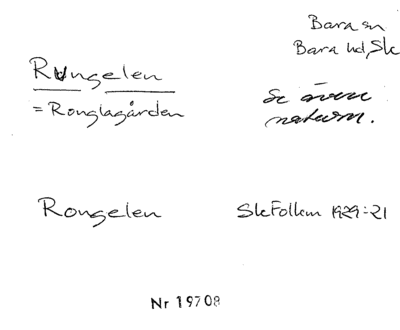 Bara sn
Bara hd, Sk
Rungelen
= Ronglagården
Se även
naturn.
Rongelen SkFolkm 1929:21
Nr 19708